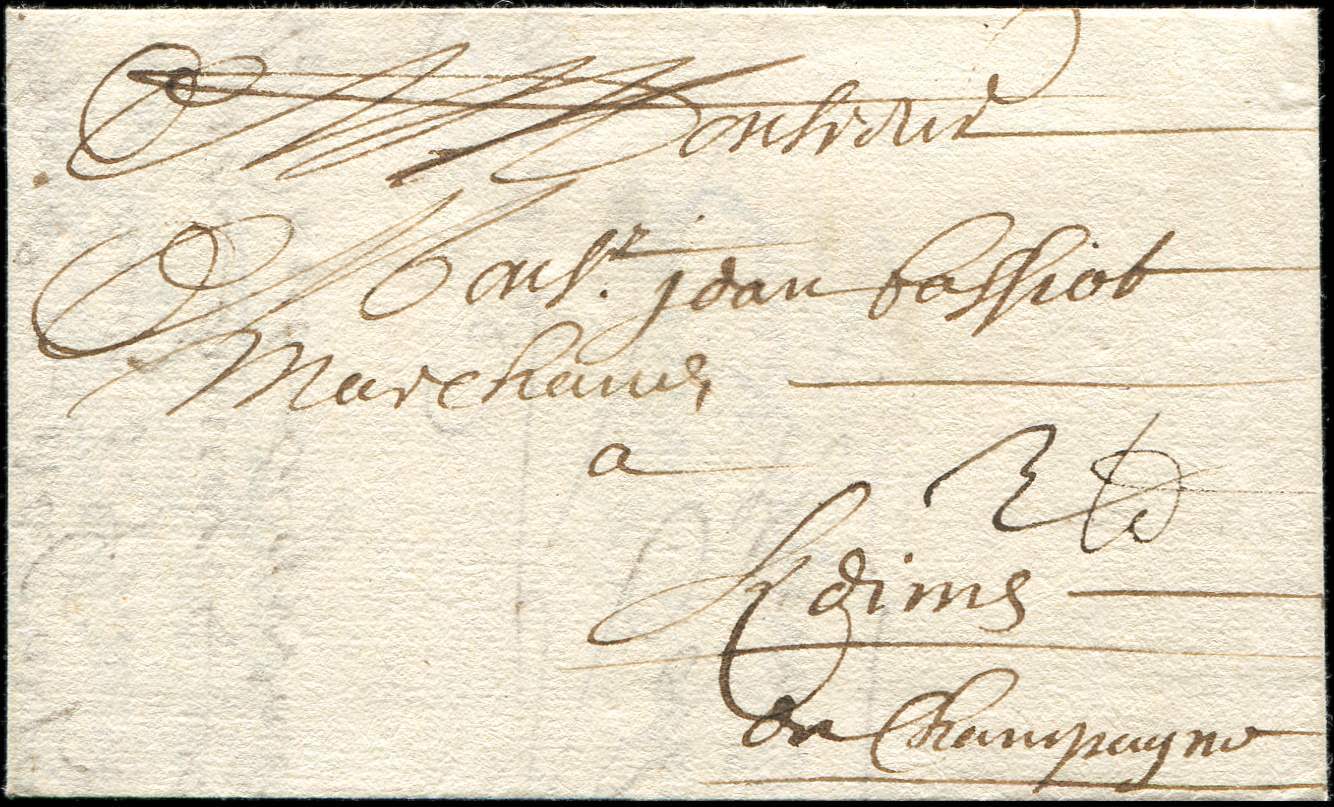 Monsieur
Monsr. jean bassiot
Marchand
a
Reims
en Champagne